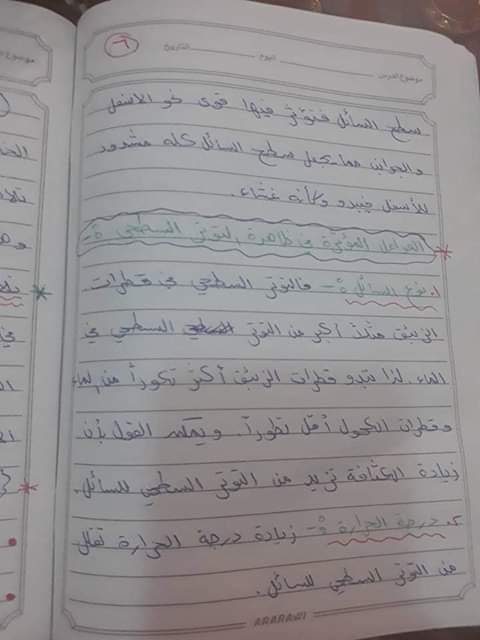 -٦-
موضوع الدرس اليوم التاريخ
سطح السائل فتؤثر فيها قوى نحو الأسفل
والجوانب مما يجعل سطح السائل كله مشدود
للأسفل فيبدو وكأنه غشاء.
العوامل المؤثرة في ظاهرة التوتر السطحي :-
١. نوع السائل :- فالتوتر السطحي في قطرات
الزئبق مثلاً أكبر من التوتر السطحي في
الماء، لذا تبدو قطرات الزئبق أكثر تكوراً من الماء
وقطرات الكحول أقل تكوراً. ويمكن القول بأن
زيادة الكثافة تزيد من التوتر السطحي للسائل.
٢. درجة الحرارة :- زيادة درجة الحرارة تقلل
من التوتر السطحي للسائل.
ARARAWI